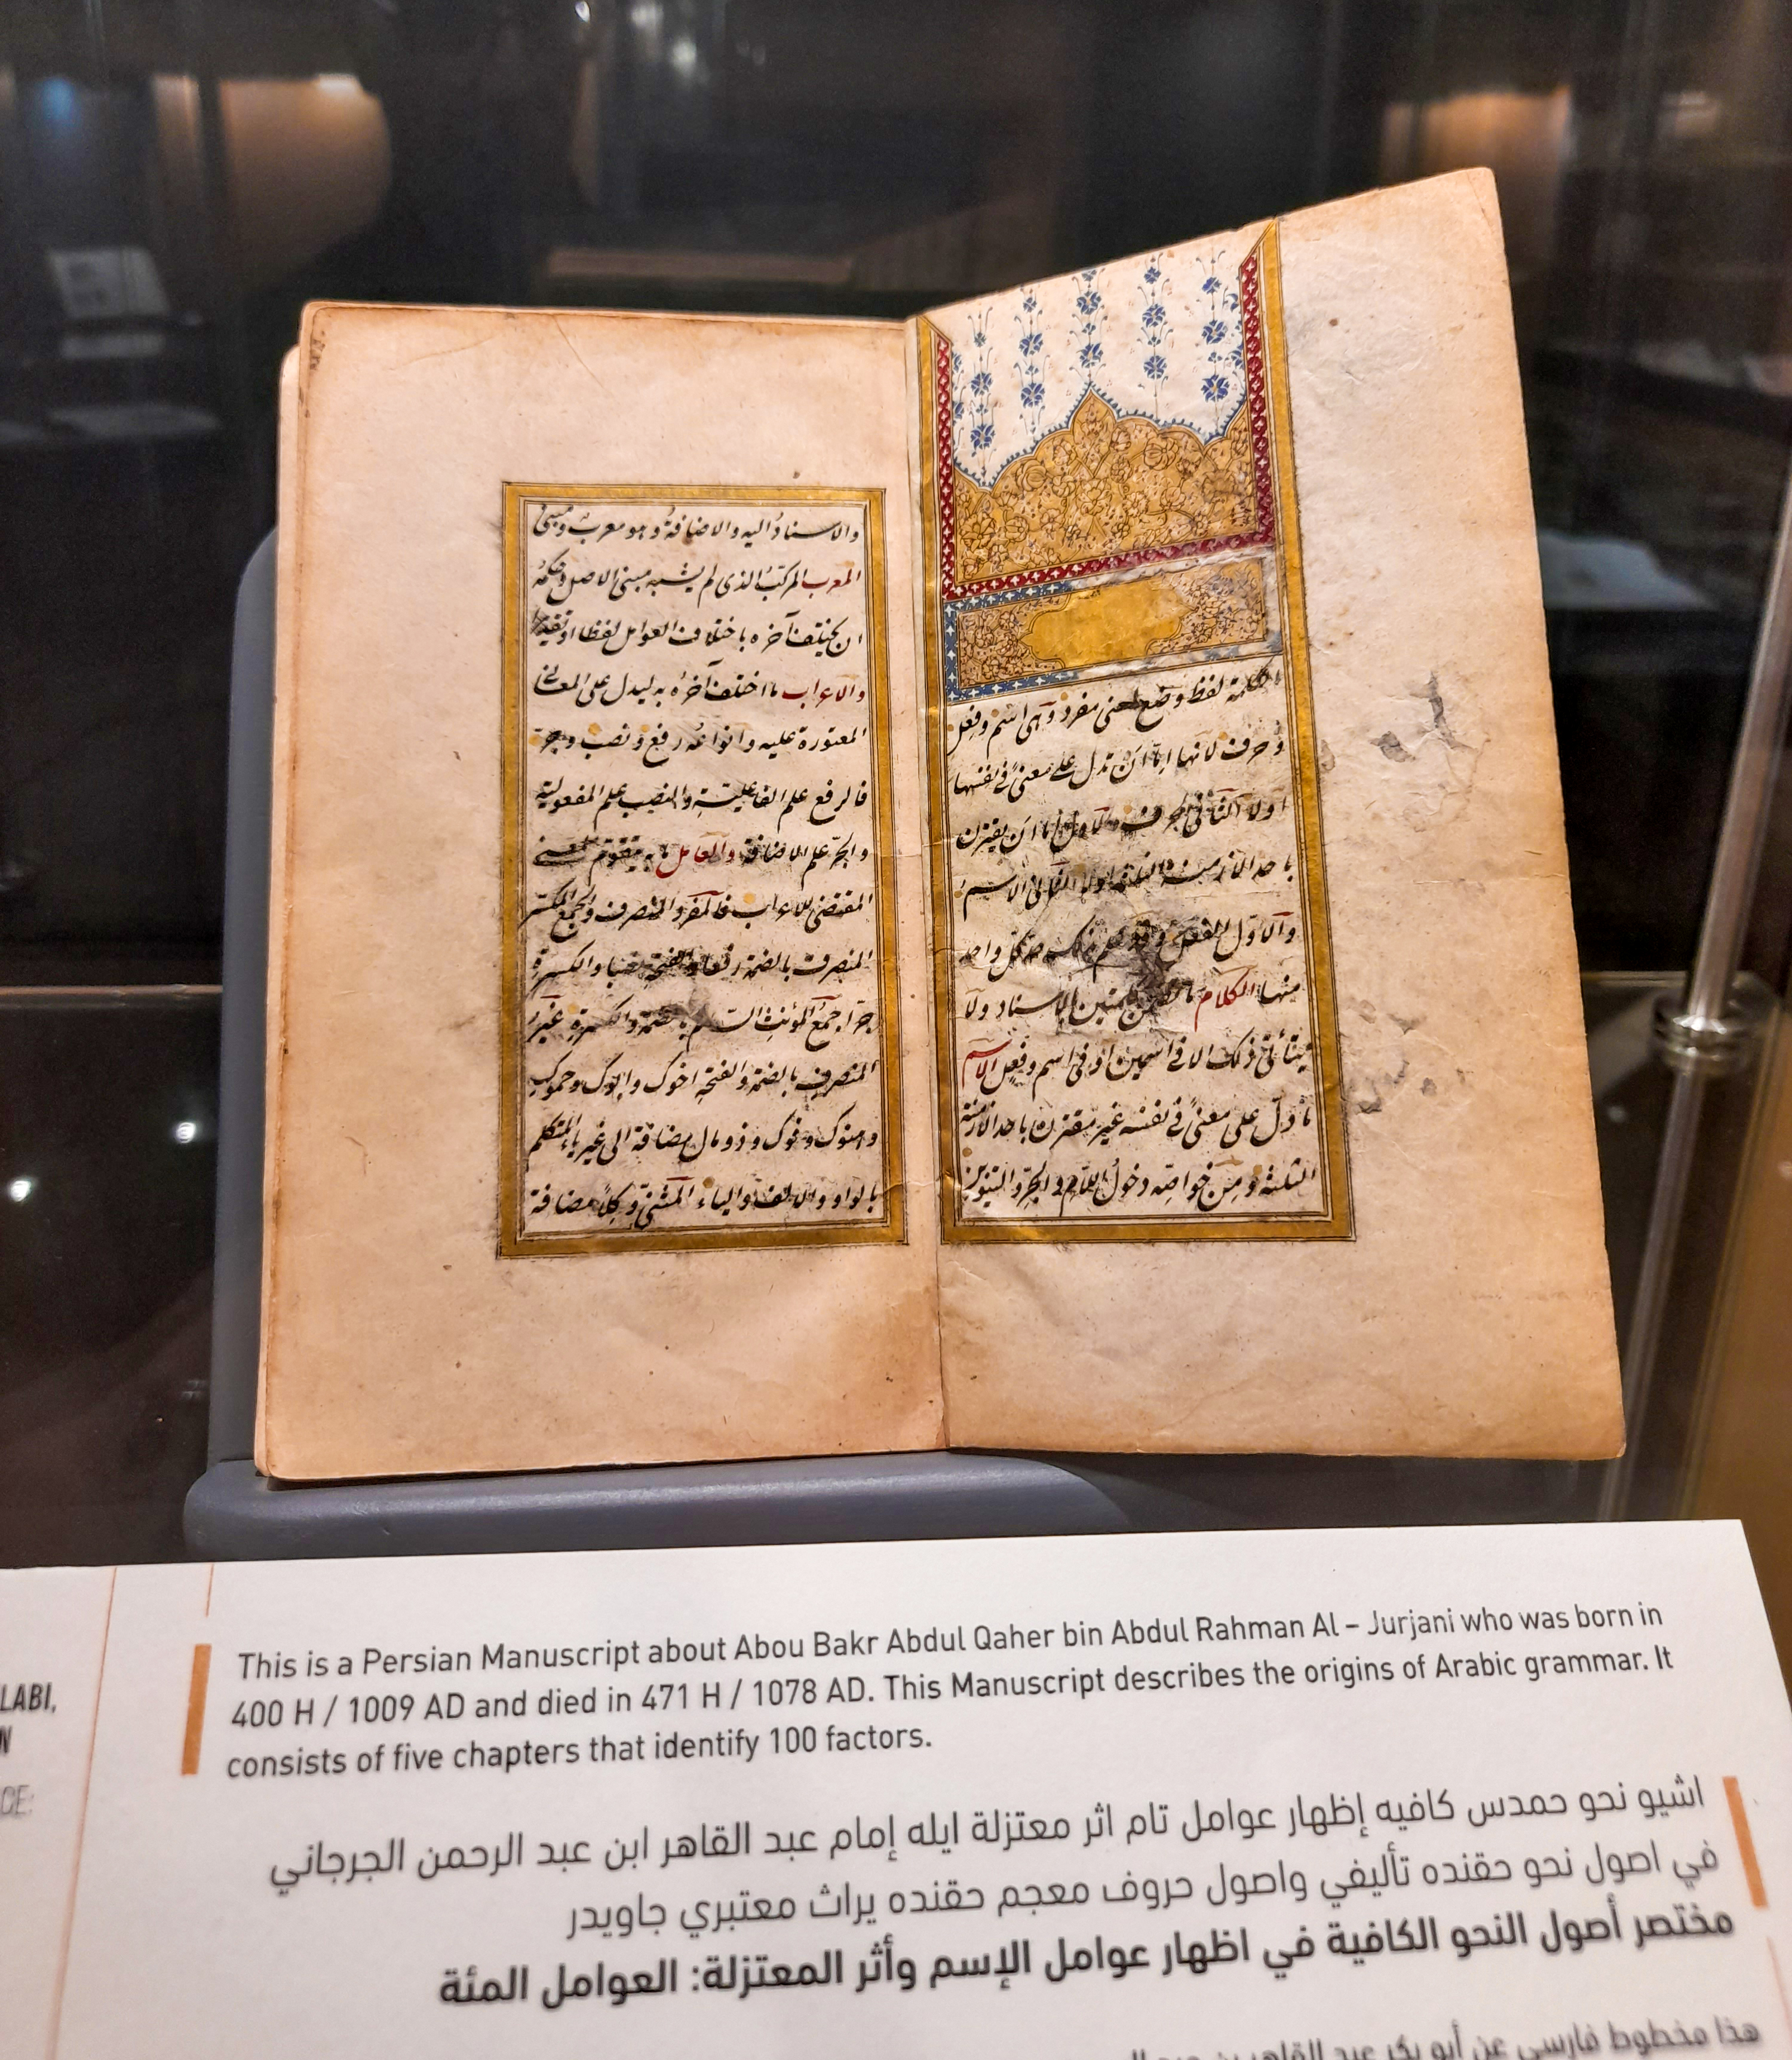 الكلمة لفظ وضع لمعنى مفرد وهى اسم وفعل
وحرف لانها اما ان تدل على معنى فى نفسها
اولا الثانى الحرف والاول اما ان يقترن
باحد الازمنة الثلثة اولا الثانى الاسم
والاول الفعل وقد علم بذلك حد كل واحد
منها الكلام ما تضمن كلمتين بالاسناد ولا
يتأتى ذلك الا فى اسمين او فى اسم وفعل الاسم
ما دل على معنى فى نفسه غير مقترن باحد الازمنة
الثلثة ومن خواصه دخول اللام والجر والتنوين
والاسناد اليه والاضافة وهو معرب ومبنى
المعرب المركب الذى لم يشبه مبنى الاصل وحكمه
ان يختلف آخره باختلاف العوامل لفظا او تقديرا
والاعراب ما اختلف آخره به ليدل على المعانى
المعتورة عليه وانواعه رفع ونصب وجر
فالرفع علم الفاعلية والنصب علم المفعولية
والجر علم الاضافة والعامل ما به يتقوم المعنى
المقتضى للاعراب فالمفرد المنصرف والجمع المكسر
المنصرف بالضمة رفعا والفتحة نصبا والكسرة
جرا جمع المؤنث السالم بالضمة والكسرة غير
المنصرف بالضمة والفتحة اخوك وابوك وحموك
وهنوك وفوك وذو مال مضافة الى غير ياء المتكلم
بالواو والالف والياء المثنى وكلا مضافة
LABI,
N
CE:
This is a Persian Manuscript about Abou Bakr Abdul Qaher bin Abdul Rahman Al – Jurjani who was born in
400 H / 1009 AD and died in 471 H / 1078 AD. This Manuscript describes the origins of Arabic grammar. It
consists of five chapters that identify 100 factors.
اشيو نحو حمدس كافيه إظهار عوامل تام اثر معتزلة ايله إمام عبد القاهر ابن عبد الرحمن الجرجاني
في اصول نحو حقنده تأليفي واصول حروف معجم حقنده يراث معتبري جاويدر
مختصر أصول النحو الكافية في اظهار عوامل الإسم وأثر المعتزلة: العوامل المئة
هذا مخطوط فارسي عن أبو بكر عبد القاهر بن عبد